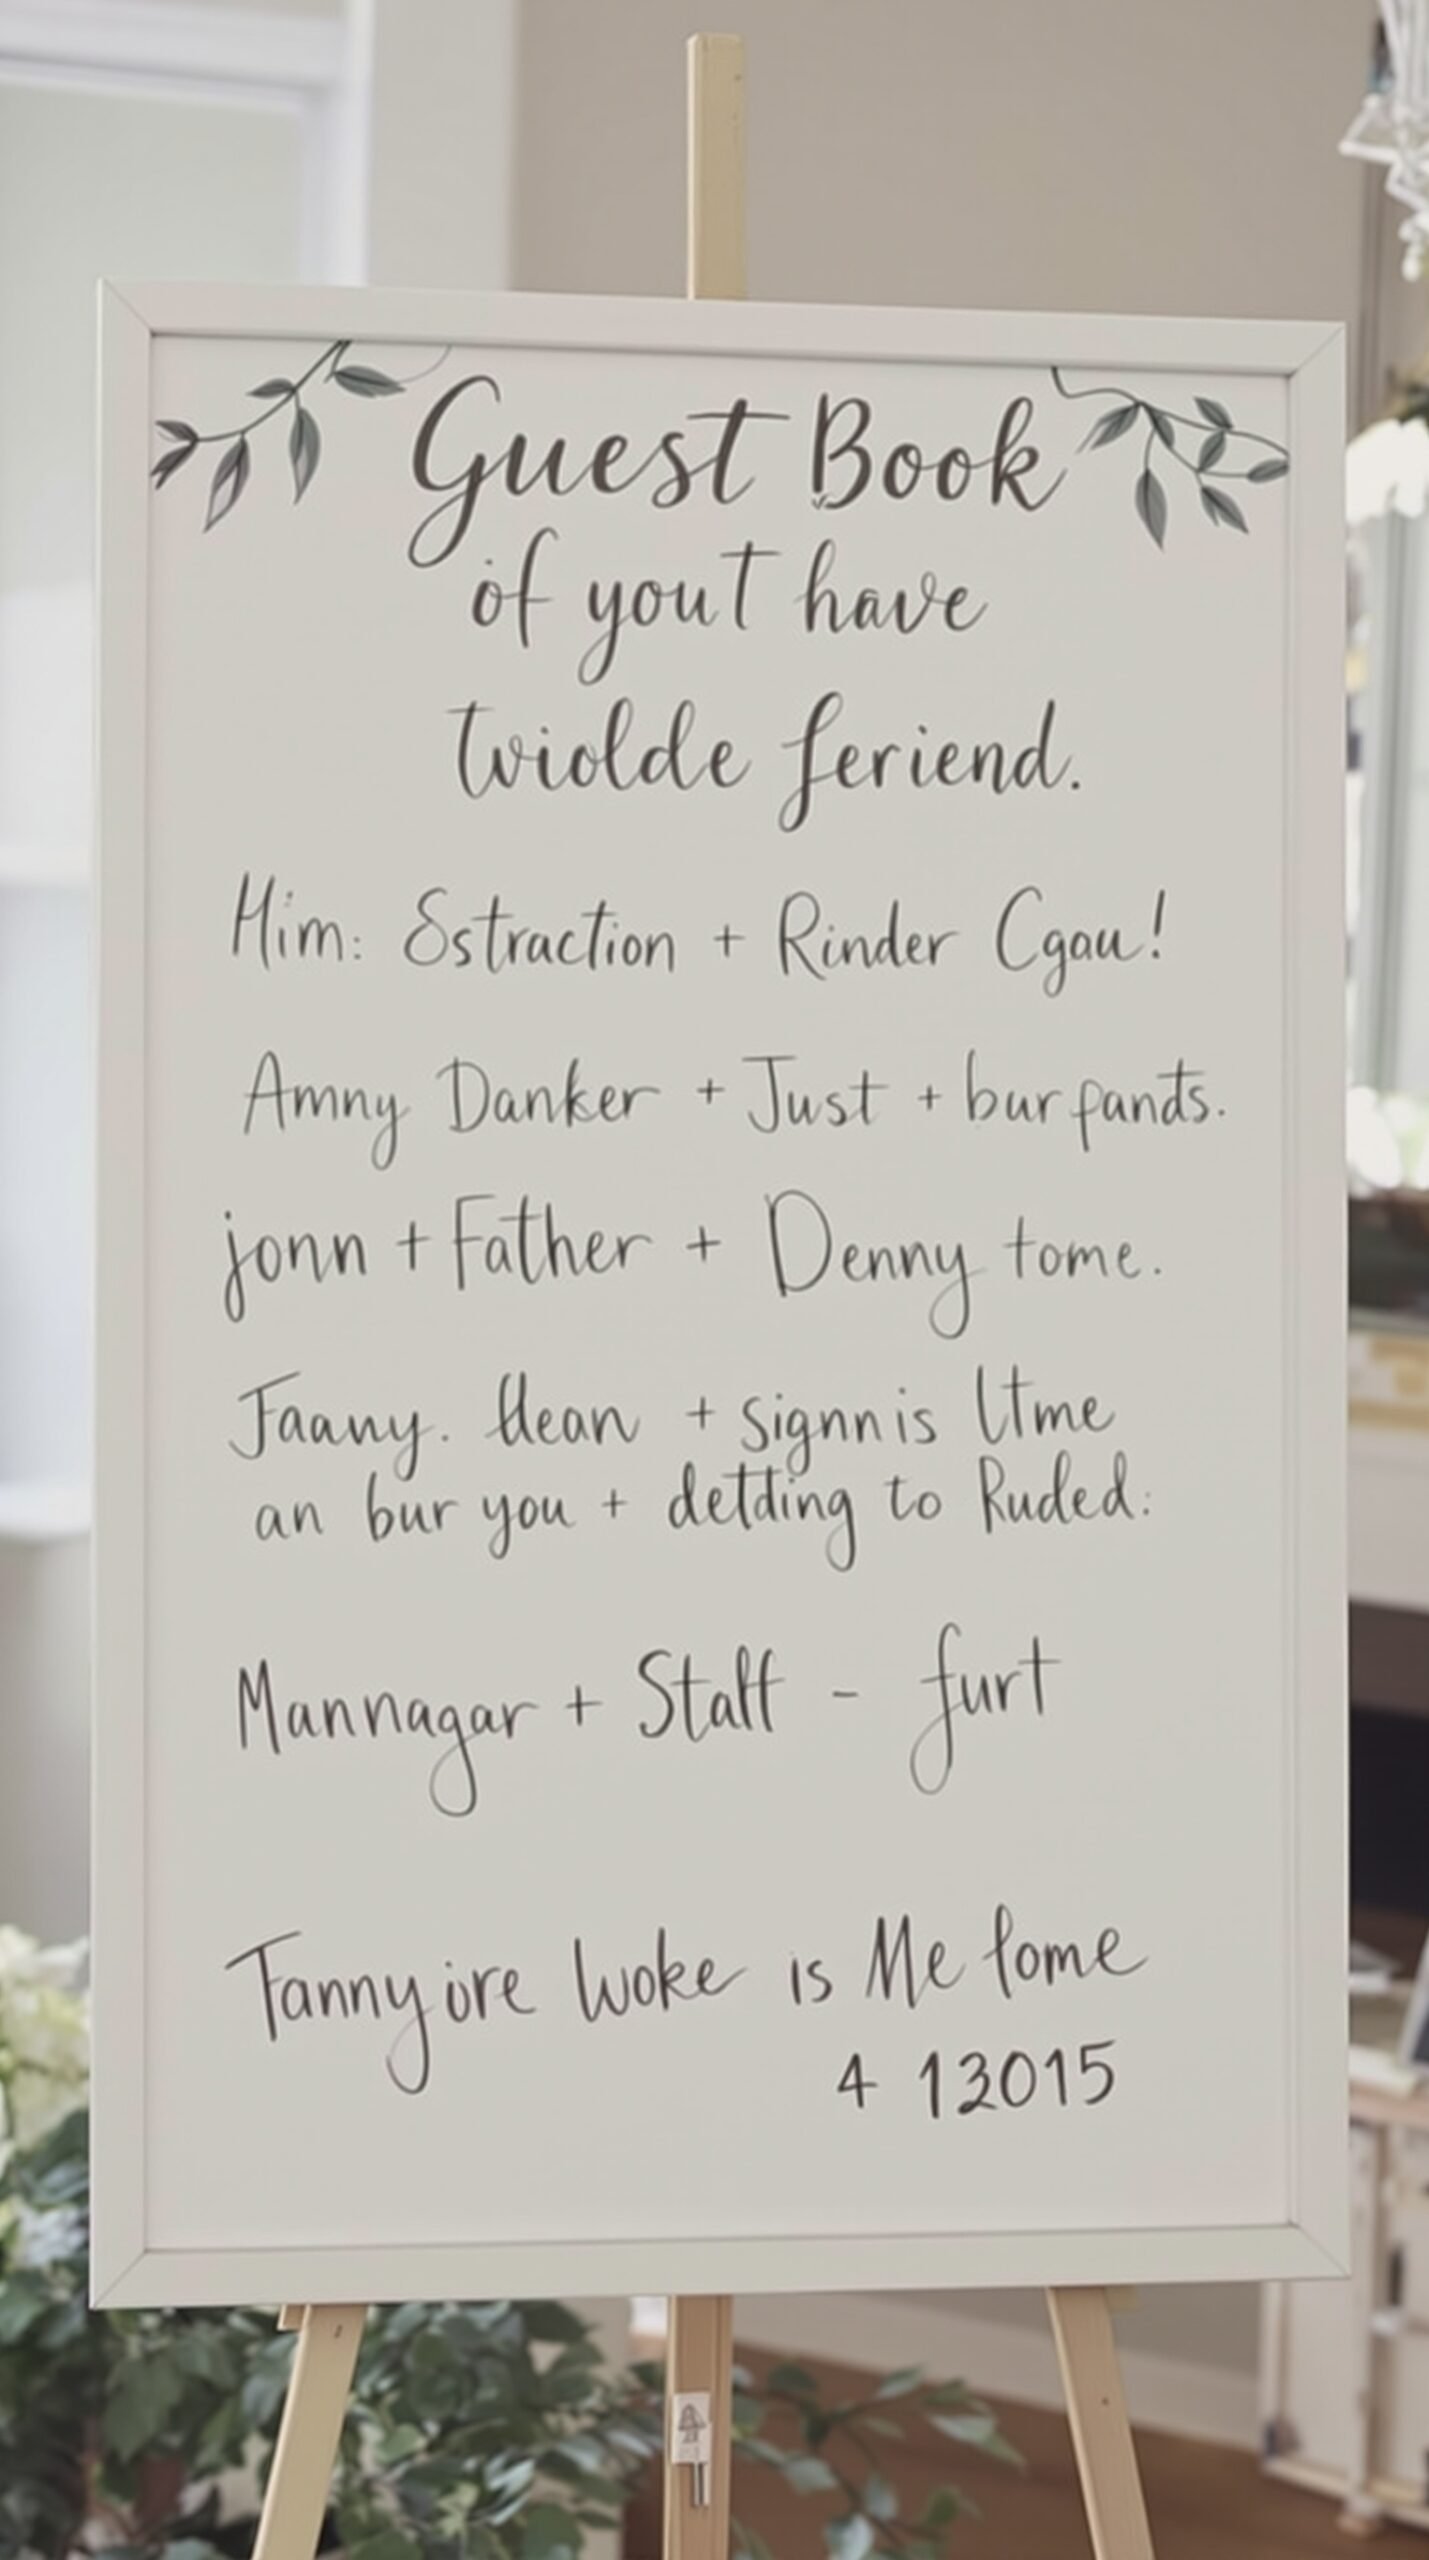 Guest Book
of yout have
twiolde feriend.
Him: Sstraction + Rinder Cgau!
Amny Danker + Just + bur pands.
jonn + Father + Denny tome.
Jaany. Hean + signnis ltme
an bur you + detding to Ruded:
Mannagar + Staff - furt
Tanny ore woke is Me lome
4 13015